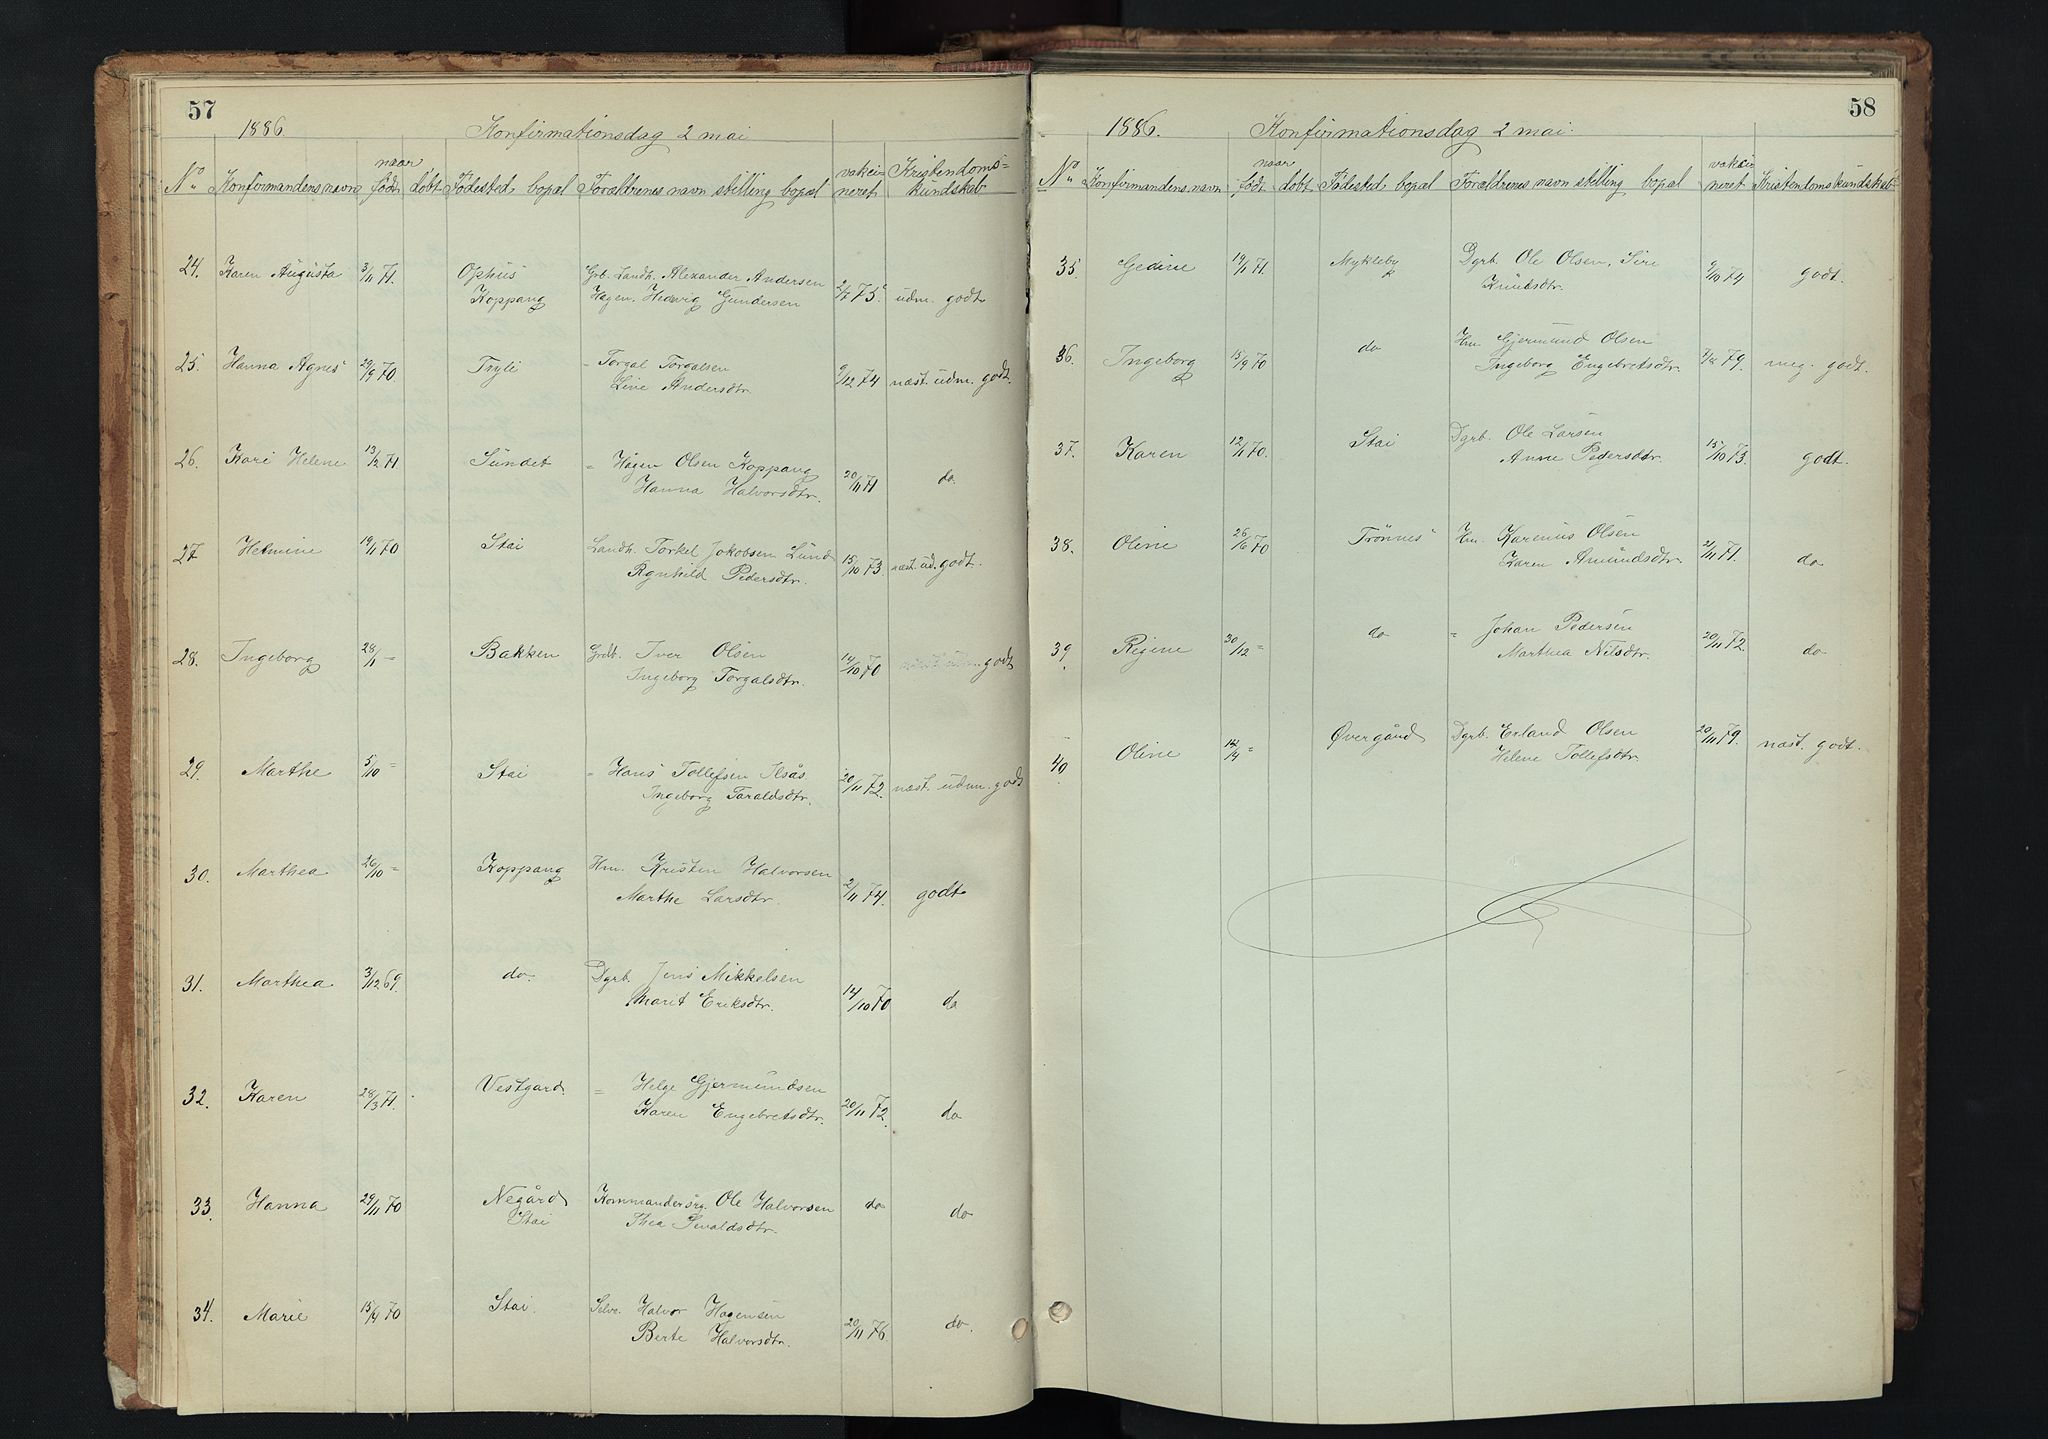 57
1886 Konfirmationsdag 2 mai
No Konfirmandens navn naar født døbt Fødested bopæl Forældrenes navn stilling bopæl vakcineret Kristendomskundskab
24. Karen Augusta 3/11 71. Ophus Grb. Landh. Alexander Andersen
Koppang Hagen. Hedvig Gundersen 2/7 75. udm. godt
25. Hanna Agnes 29/9 70. Tryli = Torgal Torgalsen
Line Andersdtr. 9/12 74 næst udm. godt.
26. Kari Helene 13/2 71 Sundet = Hagen Olsen Koppang
Hanna Halvorsdtr. 20/11 71 do
27 Helmine 19/11 70 Stai Landh. Torkel Jokobsen Lund
Rgnhild Pedersdtr. 15/10 73. næst. ud. godt.
28. Ingeborg 28/11 = Bakken Grdb. Iver Olsen
Ingeborg Torgalsdtr. 14/10 70 næst udm. godt
29. Marthe 5/10 = Stai = Hans Tollefsen Ilsås.
Ingeborg Taraldsdtr. 20/11 72. næst. udm. godt
30. Marthea 26/10 = Koppang Hm. Kristen Halvorsen
Marthe Larsdtr. 2/11 74. godt
31. Marthea 3/12 69. do. Dgrb. Jens Mikkelsen
Marit Eriksdtr. 14/10 70 do
32. Karen 28/3 71. Vestgard = Helge Gjermundsen
Karen Engebretsdtr. 20/11 72. do
33. Hanna 29/11 70 Negård Kommandersrg. Ole Halvorsen do
Stai Thea Sevaldsdtr. do
34. Marie 15/4 70 Stai. Selve. Halvor Hagensen
Berte Halvorsdtr. 20/11 76 do.
58
1886. Konfirmationsdag 2 mai.
No Konfirmandens navn naar født døbt Fødested bopæl Forældrenes navn stilling bopæl vakcineret Kristendomskundskab
35. Gedine 19/11 71. Mykleby Dgrb Ole Olsen, Siri
Knudsdtr. 9/10 74 godt.
36. Ingeborg 15/9 70 do Hm. Gjermund Olsen
Ingeborg Engebretsdtr. 7/8 79. meg. godt.
37. Karen 12/11 70. Stai Dgrb. Ole Larsen
Anne Pedersdtr. 15/10 73. godt.
38. Oline 26/6 70 Trønnes Hm. Karenus Olsen
Karen Amundsdtr. 21/11 71. do
39. Regine 30/12 = do = Johan Pedersen
Marthea Nilsdtr. 20/11 72. do
40. Oline 14/4 = Øvergård Dgrb. Erland Olsen
Helene Tollefsdtr. 20/11 79. næst. godt.